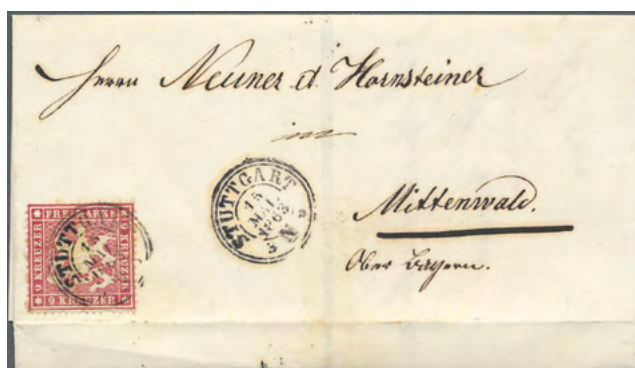 Herrn Neuner d Hornsteiner
in
Mittenwald.
Ober Bayern.
STUTTGART
15
MAI
1863
3 N
FREIMARKE
9 KREUZER
9 KREUZER
9 KREUZER
STUTT
MAI